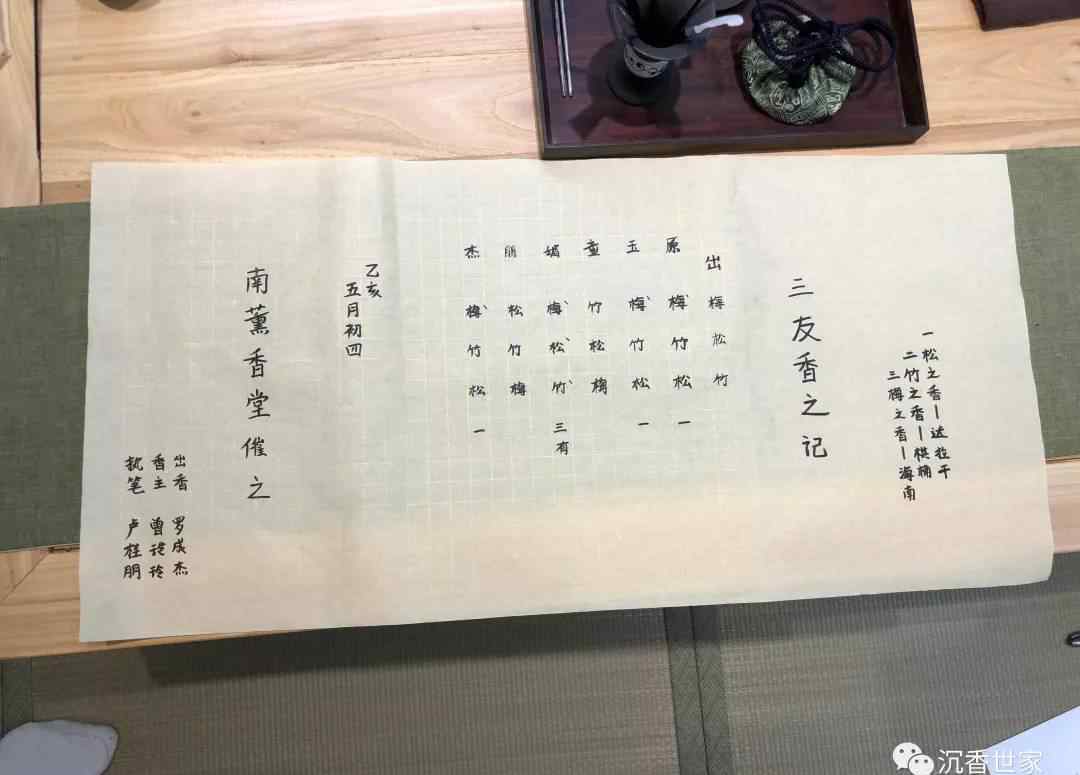 一松之香—达拉干
二竹之香—棋楠
三梅之香—海南
三友香之记
出 梅 松 竹
原 梅、竹 松 一
玉 梅、竹 松 一
童 竹 松 梅
娟 梅、松、竹、三有
朋 松 竹 梅
杰 梅、竹 松 一
乙亥
五月初四
南薰香堂催之
出香 罗成杰
香主 曾玲
执笔 卢桂朋
沉香世家